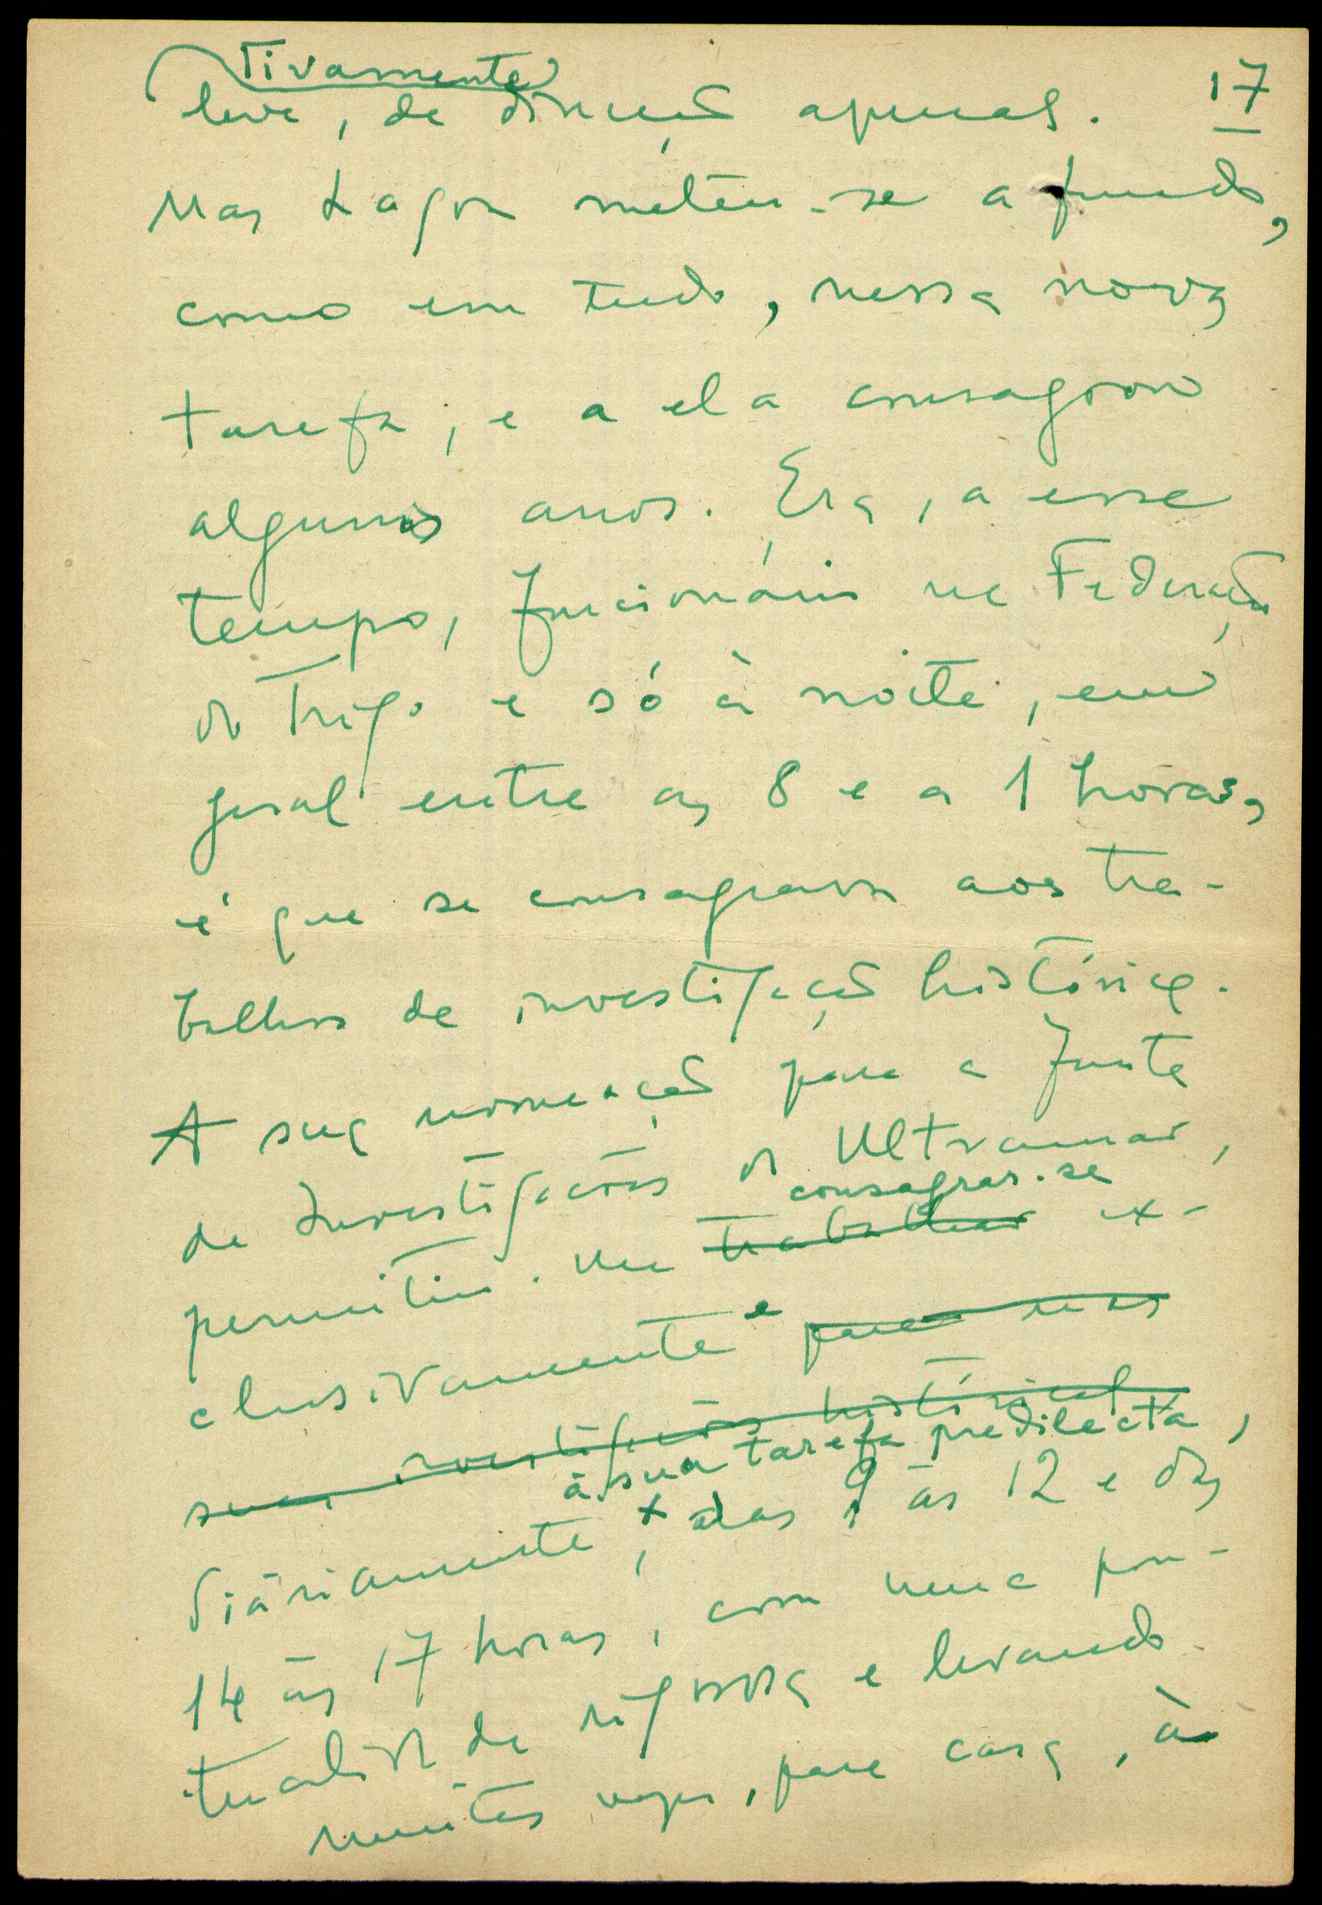 tivamente 17
leve, de direcção apenas.
Mas Lagoa meteu-se a fundo,
como em tudo, nessa nova
tarefa, e a ela consagrou
alguns anos. Era, a esse
tempo, funcionário na Federação
do Trigo e só à noite, em
geral entre as 8 e a 1 horas,
é que se consagrava aos tra-
balhos de investigação histórica.
A sua nomeação para a Junta
de Investigações do Ultramar,
consagrar-se
permitiu-lhe trabalhar ex-
clusivamente e para as
suas investigações históricas
à sua tarefa predilecta,
diáriamente, das 9 às 12 e das
14 às 17 horas, com uma pon-
tualidade rigorosa e levando
muitas vezes, para casa, à